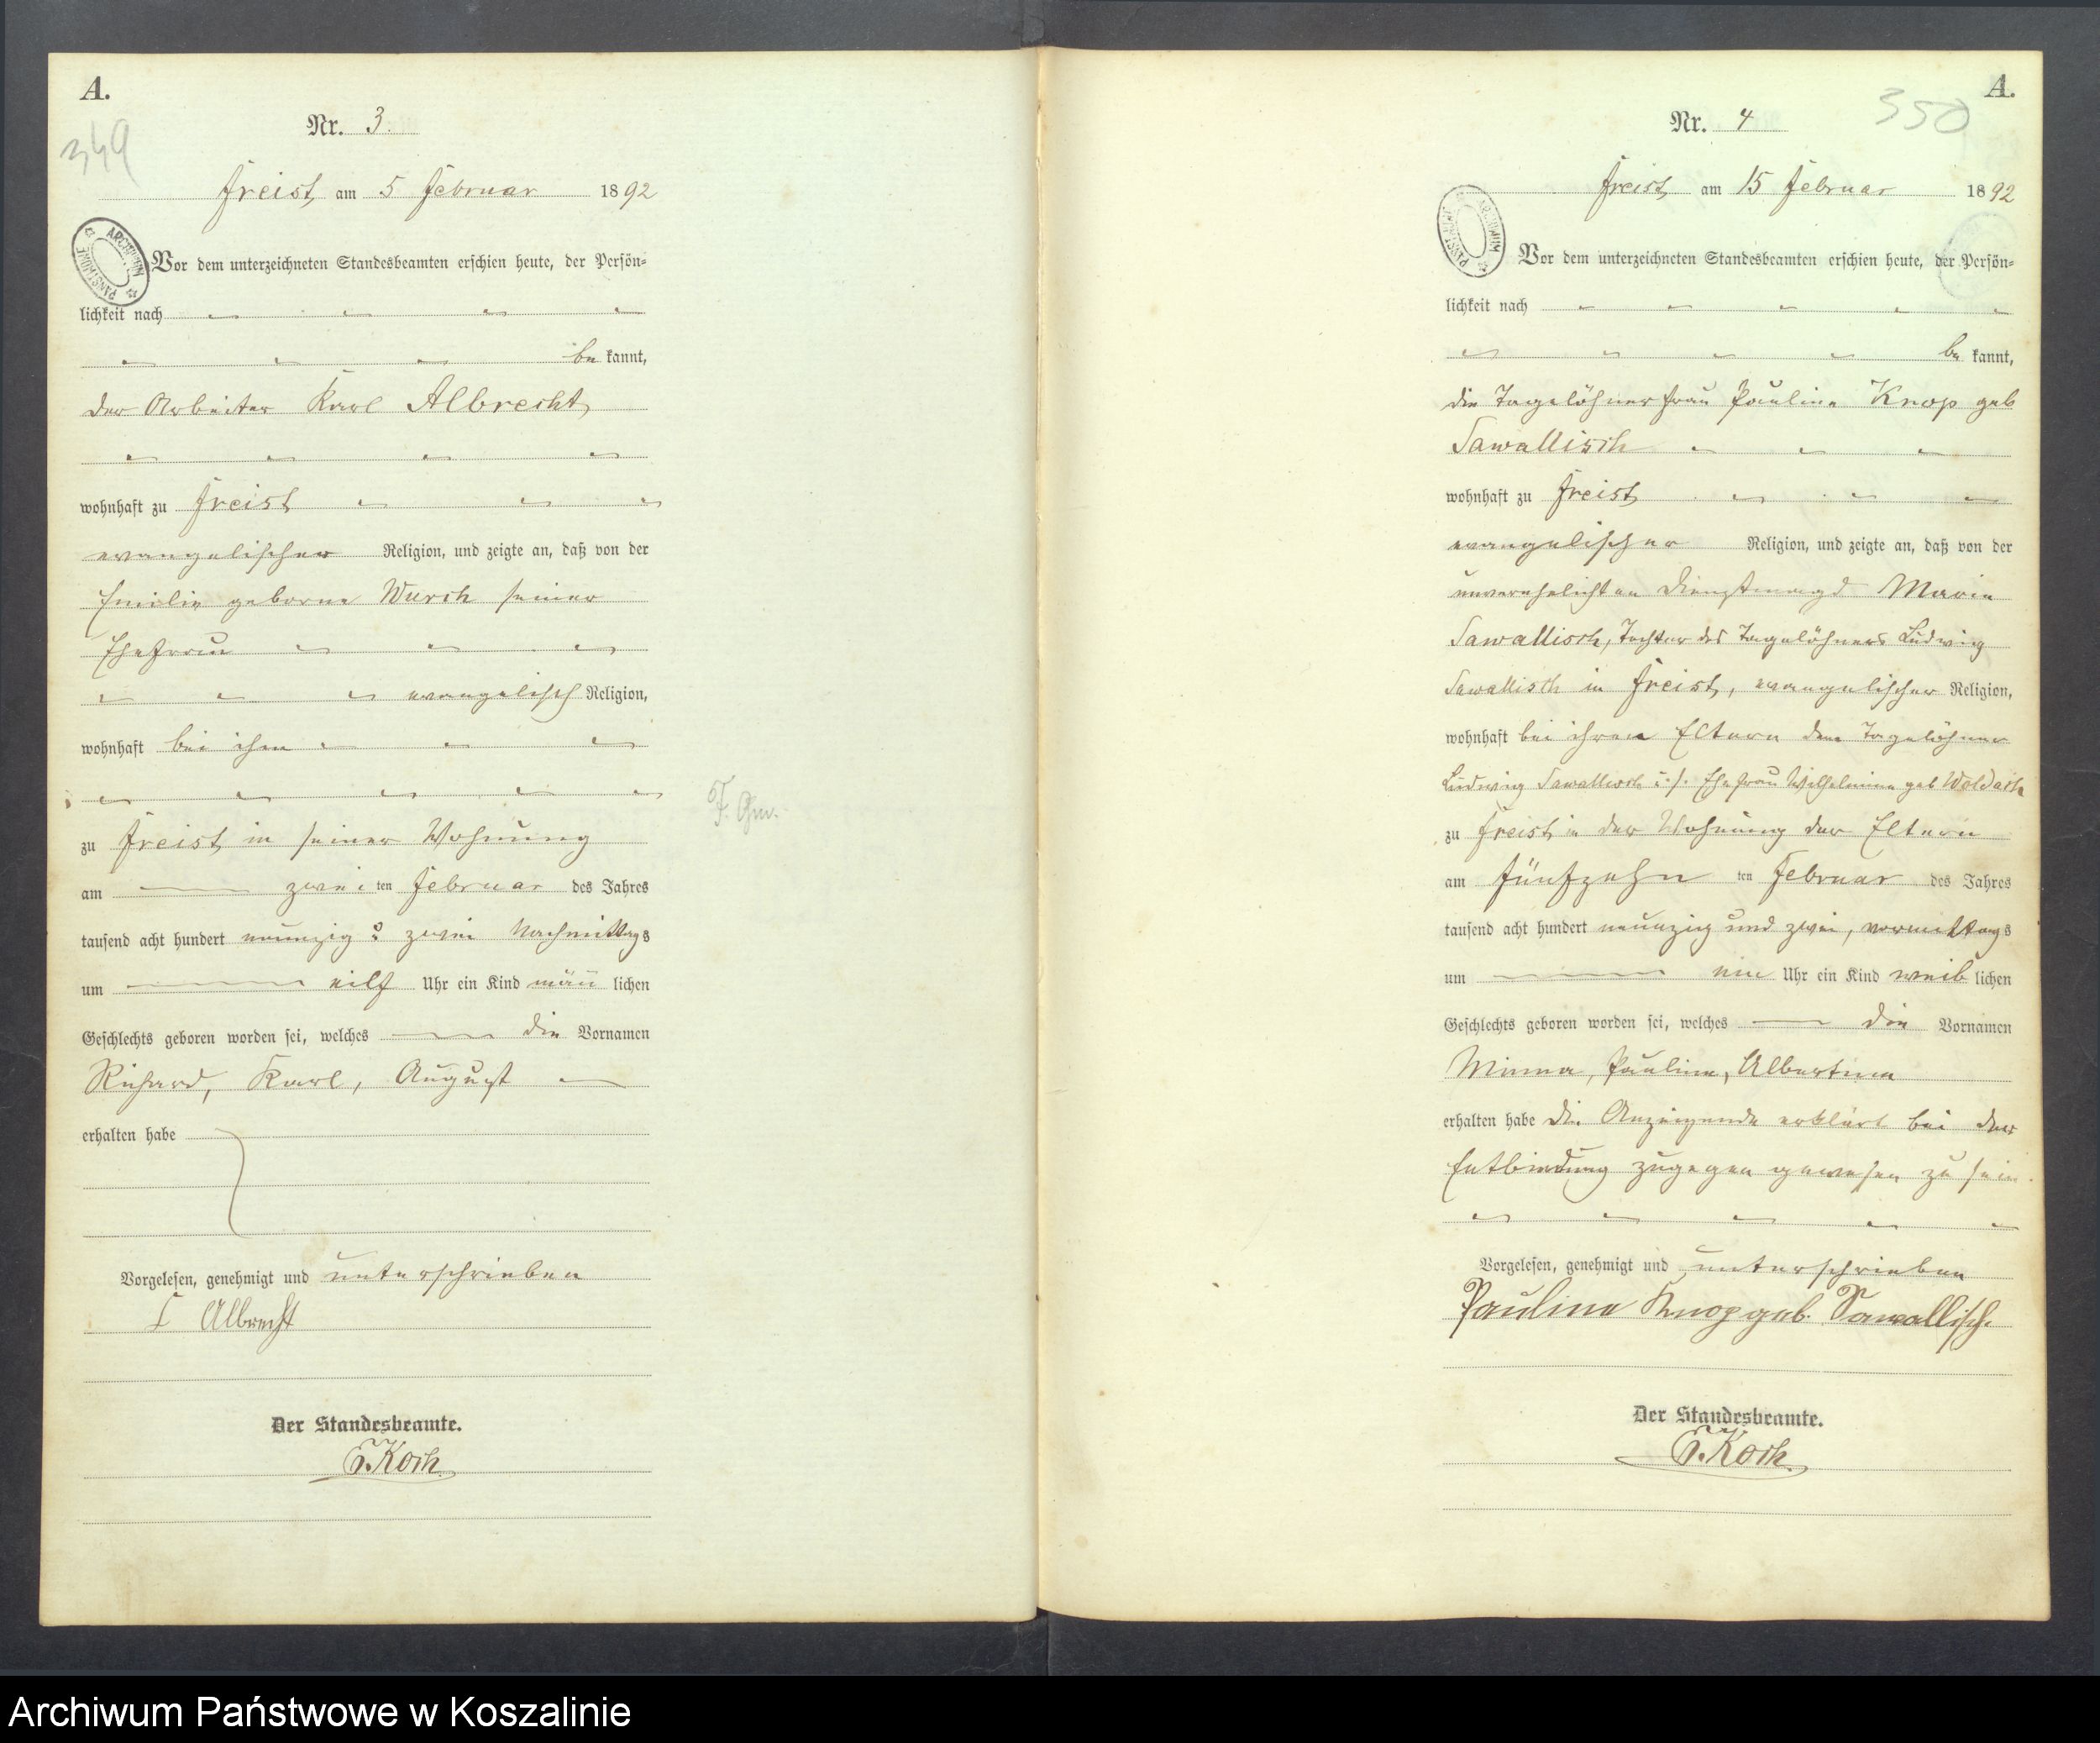 A.
349
Nr. 3.
Freist am 5 Februar 1892
ARCHIWUM PAŃSTWOWE
Vor dem unterzeichneten Standesbeamten erschien heute, der Persön-
lichkeit nach
be kannt,
der Arbeiter Karl Albrecht
wohnhaft zu Freist
evangelischer Religion, und zeigte an, daß von der
Emilie geborne Wurch seiner
Ehefrau
evangelisch Religion,
wohnhaft bei ihm
zu Freist in seiner Wohnung
am zwei ten Februar des Jahres
tausend acht hundert neunzig u zwei Nachmittags
um eilf Uhr ein Kind män̄ lichen
Geschlechts geboren worden sei, welches die Vornamen
Richard, Karl, August
erhalten habe
Vorgelesen, genehmigt und unterschrieben
Albrecht
Der Standesbeamte.
Koch
A.
350
Nr. 4
Freist am 15 Februar 1892
ARCHIWUM PAŃSTWOWE
Vor dem unterzeichneten Standesbeamten erschien heute, der Persön-
lichkeit nach
be kannt,
die Tagelöhnerfrau Pauline Knop geb
Sawallisch
wohnhaft zu Freist
evangelischer Religion, und zeigte an, daß von der
unverehelichten Dienstmagd Marie
Sawallisch, Tochter des Tagelöhners Ludwig
Sawallisch in Freist, evangelischer Religion,
wohnhaft bei ihren Eltern dem Tagelöhner
Ludwig Sawallisch u. s. Ehefrau Wilhelmine geb
zu Freist in der Wohnung der Eltern
am fünfzehn ten Februar des Jahres
tausend acht hundert neunzig und zwei, vormittags
um ein Uhr ein Kind weib lichen
Geschlechts geboren worden sei, welches die Vornamen
Minna, Pauline, Albertine
erhalten habe die Anzeigende erklärt bei der
Entbindung zugegen gewesen zu sein.
Vorgelesen, genehmigt und unterschrieben
Pauline Knop geb. Sawallisch.
Der Standesbeamte.
Koch
Archiwum Państwowe w Koszalinie